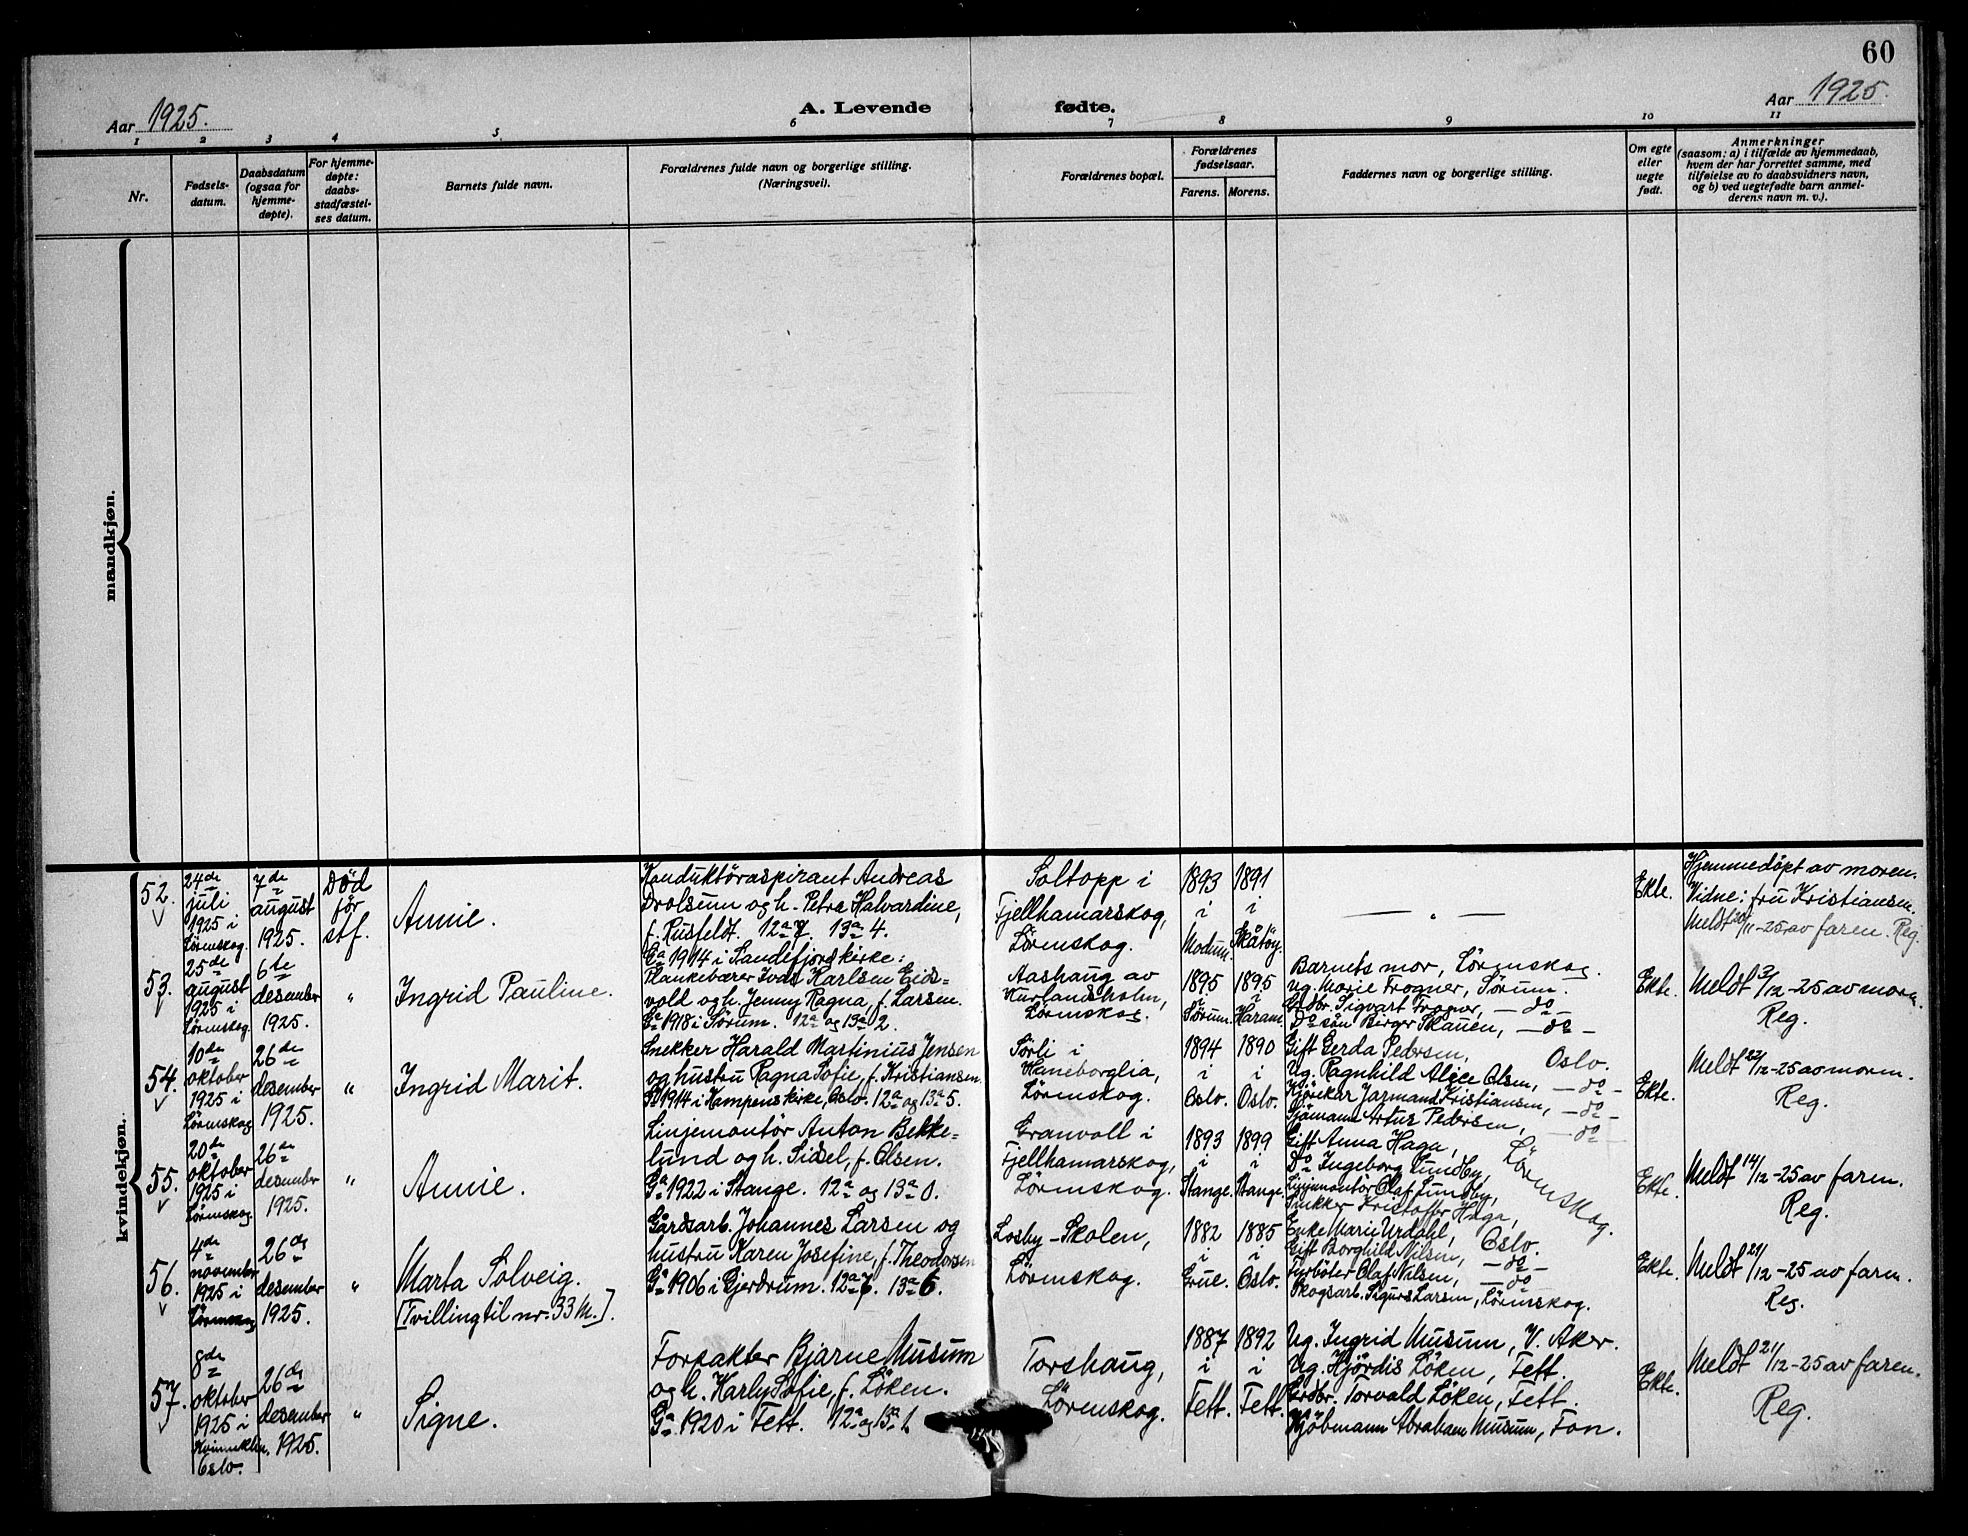 60
Aar 1925.
A. Levende fødte.
Aar 1925.
1 2 3 4 5 6 7 8 9 10 11
Nr.
Fødsels-
datum.
Daabsdatum
(ogsaa for
hjemme-
døpte).
For hjemme-
døpte:
daabs-
stadfæstel-
ses datum.
Barnets fulde navn.
Forældrenes fulde navn og borgerlige stilling.
(Næringsvei).
Forældrenes bopæl.
Forældrenes
fødselsaar.
Farens. Morens.
Faddernes navn og borgerlige stilling.
Om egte
eller
uegte
født.
Anmerkninger
(saasom: a) i tilfælde av hjemmedaab,
hvem der har forrettet samme, med
tilføielse av to daabsvidners navn,
og b) ved uegtefødte barn anmel-
derens navn m. v.).
mandkjøn.
kvindekjøn.
52.
24de
juli
1925 i
Lörenskog.
7de
august
1925.
Död
för
stf.
Annie.
Konduktöraspirant Andreas
Drolsum og h. Petra Halvardine,
f. Rusfeldt. 12a7. 13a4.
Ga 1914 i Sandefjords kirke:
Soltopp i
Fjellhamarskog,
Lörenskog.
1893
i
Modum.
1891
i
Skåtöy.
— " —
Ekte.
Hjemmedöpt av moren.
Vidne: fru Kristiansen.
Meldt 20/11-25 av faren. Reg.
53.
25de
august
1925 i
Lörenskog.
6te
desember
1925.
"
Ingrid Pauline.
Plankebærer Ivar Karlsen Eids-
vold og h. Jenny Ragna, f. Larsen.
Ga 1918 i Sörum. 12a og 13a 2.
Aashaug av
Kurlandsholm,
Lörenskog.
1895
i
Sörum.
1895
i
Haram.
Barnets mor, Lörenskog.
Ug. Marie Frogner, Sörum.
Grdbr. Sigvart Frogner, —do—
Do sön Birger Skauen, —do—
Ekte.
Meldt 3/12-25 av moren.
Reg.
54.
10de
oktober
1925 i
Lörenskog
26de
desember
1925.
"
Ingrid Marit.
Snekker Harald Martinius Jensen
og hustru Ragna Sofie, f. Kristiansen.
Ga 1914 i Kampens kirke, Oslo. 12a og 13a 5.
Sörli i
Haneborglia,
Lörenskog.
1894
i
Oslo.
1890
i
Oslo.
Gift Gerda Pedersen, Oslo.
Ug. Ragnhild Alice Olsen, —do—
Kjörekar Jarmand Kristiansen, —do—
Sjömann Artur Pedersen, —do—
Ekte.
Meldt 22/12-25 av moren.
Reg.
55.
20de
oktober
1925 i
Lörenskog.
26de
desember
1925.
"
Annie.
Linjemontör Anton Bekke-
lund og h. Sidsel, f. Olsen.
Ga 1922 i Stange. 12a og 13a 0.
Granvoll i
Fjellhamarskog,
Lörenskog.
1893
i
Stange.
1899
i
Stange.
Gift Anna Haga,
Do Ingeborg Lundby,
Linjemontör Olaf Lundby,
Snekker Kristoffer Haga,
Lörenskog.
Ekte.
Meldt 14/12-25 av faren.
Reg.
56.
4de
november
1925 i
Lörenskog
26de
desember
1925.
"
Marta Solveig.
[Tvilling til nr. 33 M.].
Gårdsarb. Johannes Larsen og
hustru Karen Josefine, f. Theodorsen
Ga 1906 i Gjerdrum. 12a7. 13a6.
Losby-Skolen,
Lörenskog.
1882
i
Grue.
1885
i
Oslo.
Enke Marie Urdahl, Oslo.
Gift Borghild Nilsen, —do—
Fyrböter Olaf Nilsen, —do
Skogsarb. Sigurd Larsen, Lörenskog.
Ekte.
Meldt 21/12-25 av faren.
Reg.
57.
8de
oktober
1925 i
Kvinneklin.
Oslo.
26de
desember
1925.
"
Signe.
Forpakter Bjarne Musum
og h. Karly Sofie, f. Löken.
Ga 1920 i Fett. 12a og 13a 1.
Torshaug,
Lörenskog.
1887
i
Fett.
1892
i
Fett.
Ug. Ingrid Musum, V. Aker.
Ug. Hjördis Löken, Fett.
Grdbr. Torvald Löken, Fett.
Kjöbmann Abraham Musum, Fon.
Ekte.
Meldt 21/12-25 av faren.
Reg.